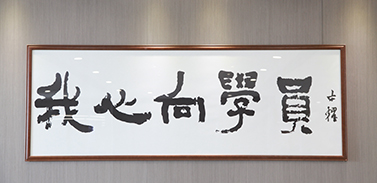 我心向學員
占耀